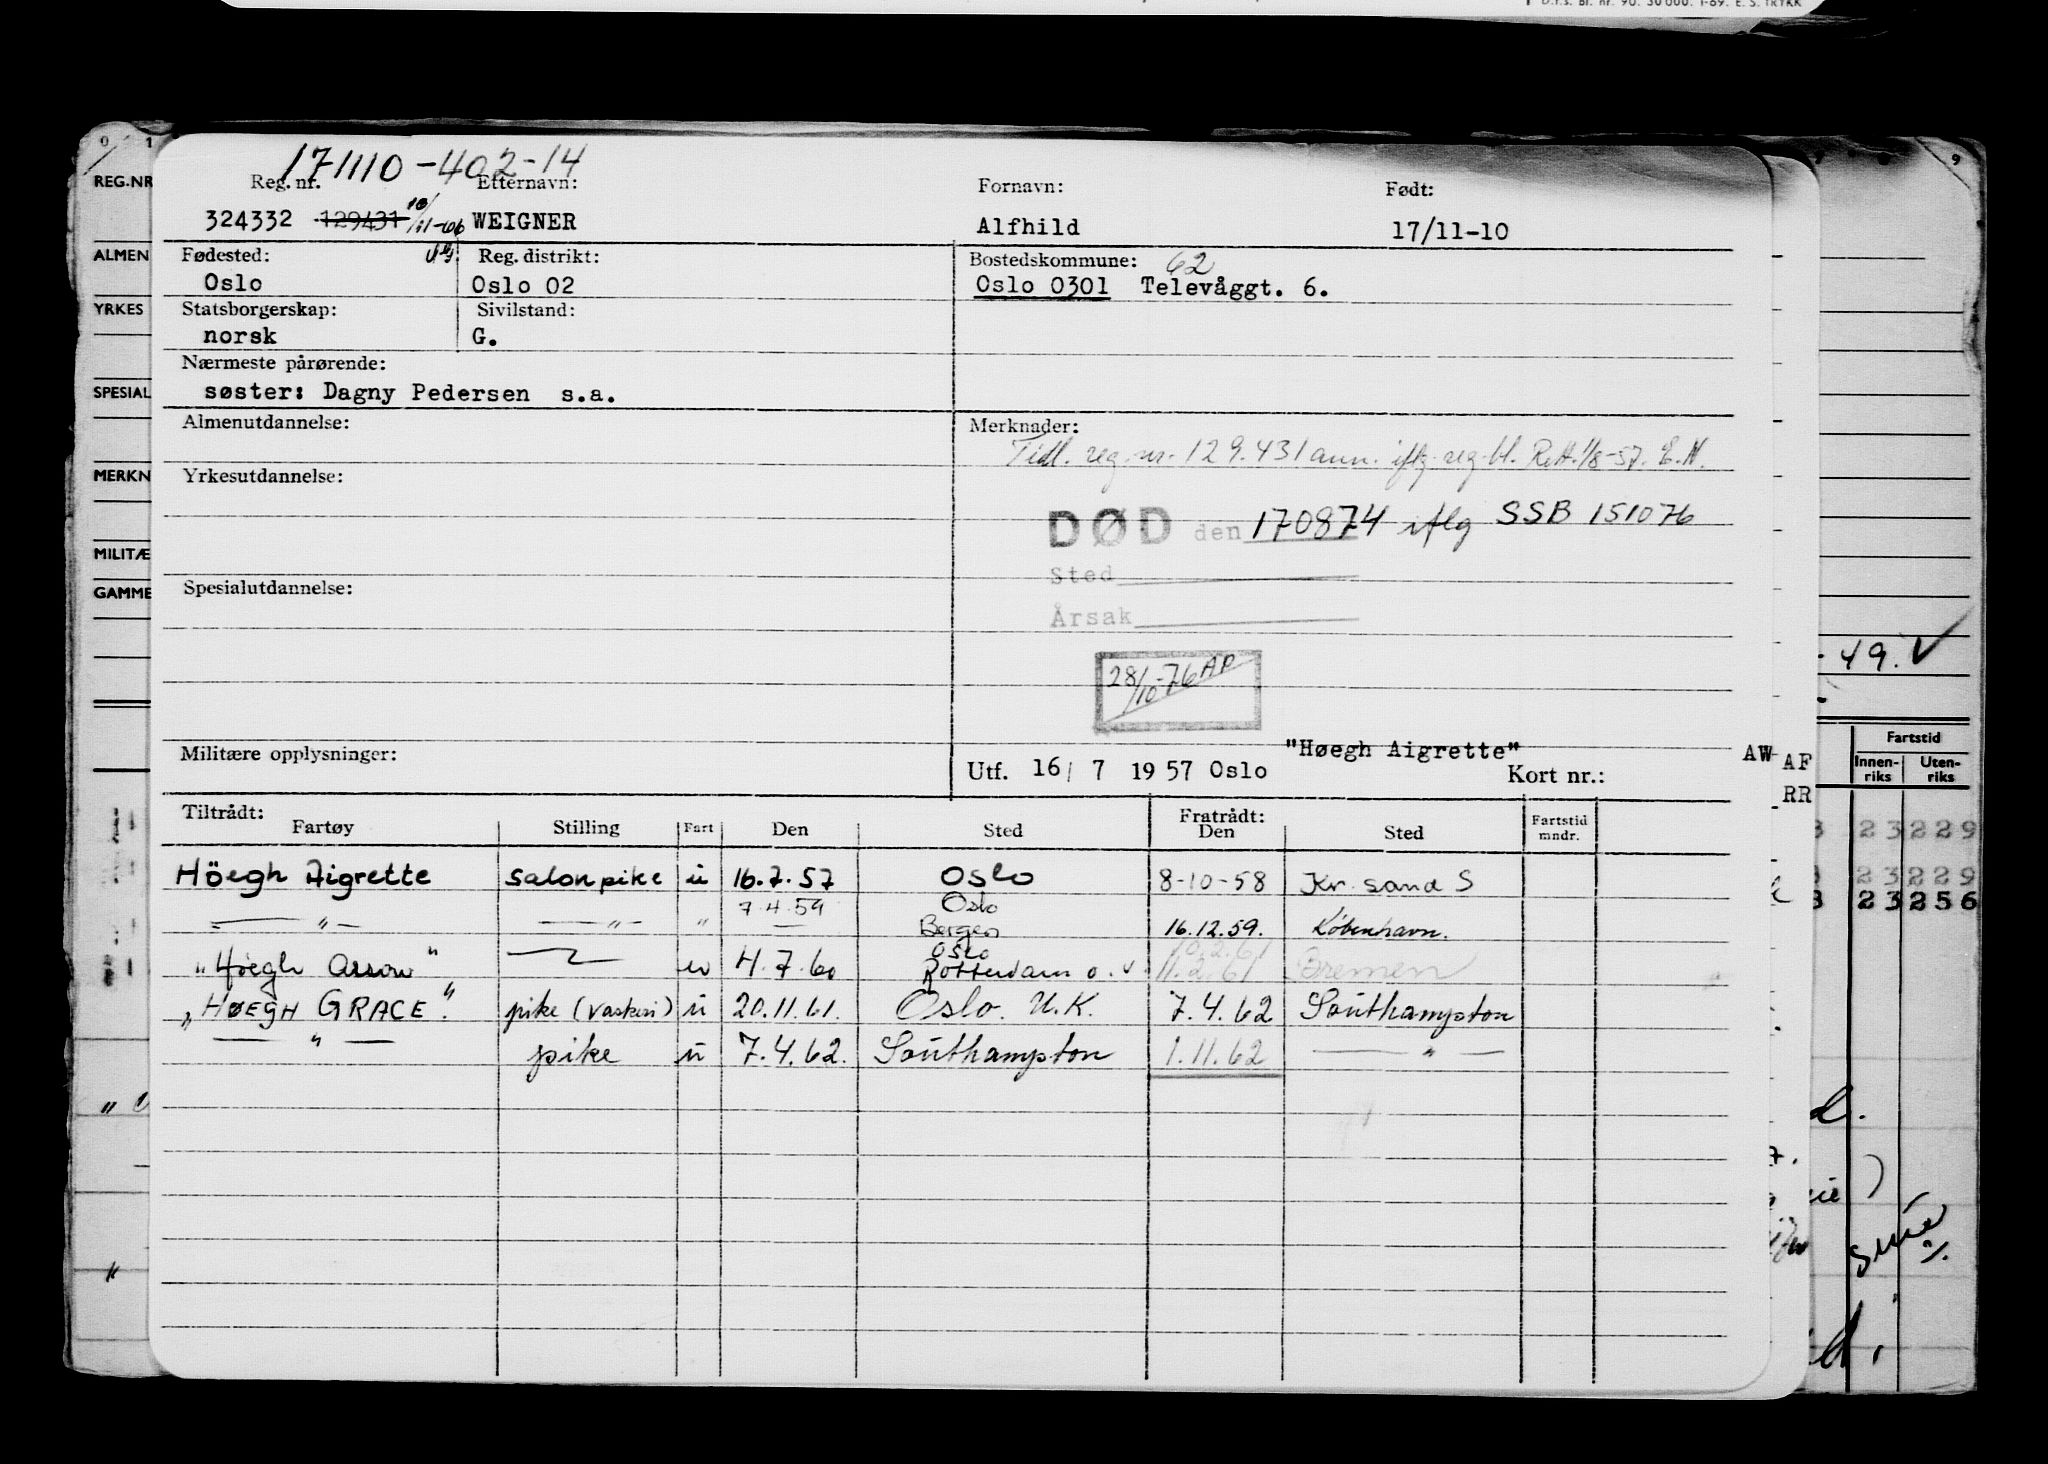 D.f.s. Bl. nr. 90. 30 000. 1-69. E. S. TRYKK
171110-402-14
Reg. nr. Efternavn: Fornavn: Født:
324332 129431 10/11-66 WEIGNER Alfhild 17/11-10
Fødested: Reg. distrikt: Bostedskommune: 62
Oslo Oslo 02 Oslo 0301 Televåggt. 6.
Statsborgerskap: Sivilstand:
norsk G.
Nærmeste pårørende:
søster: Dagny Pedersen s.a.
Almenutdannelse: Merknader:
Tidl. reg. nr. 129.431 ann. iflg. reg. bl. R.H. 1/8-57. E.N.
Yrkesutdannelse:
DØD den 170874 iflg SSB 151076
Sted
Spesialutdannelse:
Årsak
28/10-76 AP
Militære opplysninger:
"Høegh Aigrette"
Utf. 16/ 7 1957 Oslo Kort nr.:
Tiltrådt: Fratrådt:
Fartøy Stilling Fart Den Sted Den Sted Fartstid mndr.
Höegh Aigrette Salonpike u 16.7.57 Oslo 8-10-58 Kr. sand S
7.4.59 Oslo
— " — — " — " — Bergen 16.12.59. København.
Oslo 10.2.61
"Höegh Arrow" u 4.7.60 Rotterdam o.v. 11.2.61 Bremen
"HØEGH GRACE". pike (vaskeri) u 20.11.61. Oslo. U.K. 7.4.62 Southampton
— " — pike u 7.4.62. Southampton 1.11.62 — " —
0 1
REG.NR
ALMEN
YRKES
SPESIAL
MERKN
MILITÆ
GAMME
9
49. ✓
AW AF
RR
Fartstid
Innen-riks Uten-riks
23 229
23 229
23 256